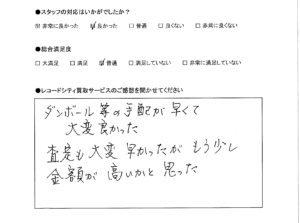 ●スタッフの対応はいかがでしたか？
☐ 非常に良かった ☑ 良かった ☐ 普通 ☐ 良くない ☐ 非常に良くない
●総合満足度
☐ 大満足 ☐ 満足 ☑ 普通 ☐ 満足していない ☐ 非常に満足していない
●レコードシティ買取サービスのご感想を聞かせてください
ダンボール等の手配が早くて
大変良かった
査定も大変早かったがもう少し
金額が高いかと思った